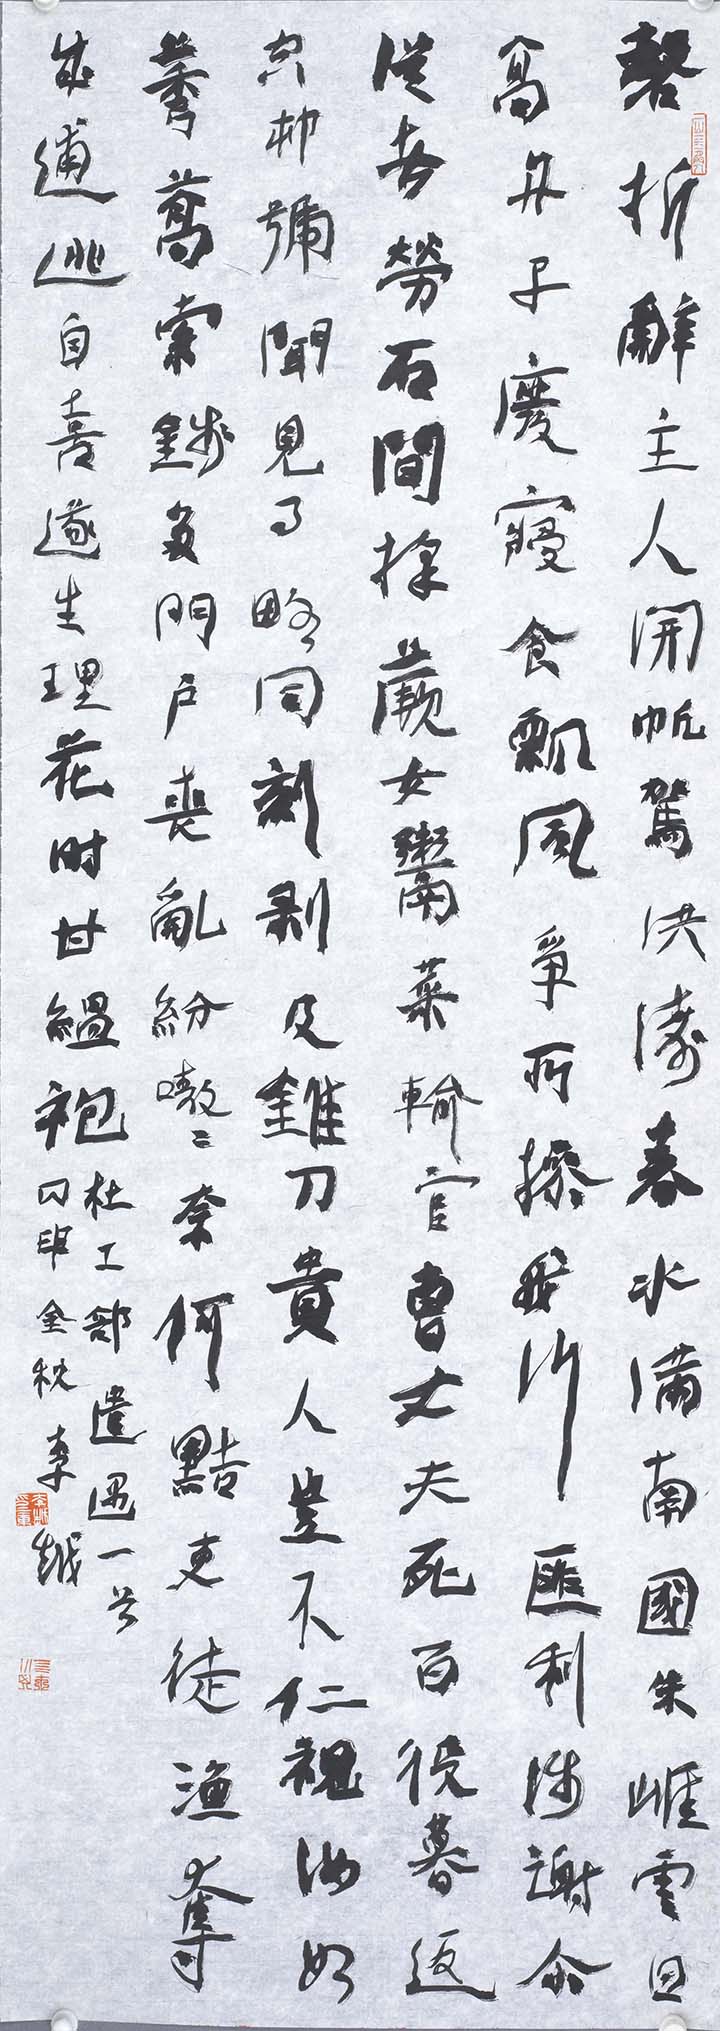 磬折辭主人開帆駕洪濤春水滿南國朱崕雲日
高舟子廢寢食飄風爭所操我行匪利涉謝尒
從者勞石間採蕨女鬻菜輸官曹丈夫死百役暮返
空邨號聞見事略同刻剥及錐刀貴人豈不仁視汝如
莠蒿索錢多門戶喪亂紛嗷〻奈何黠吏徒漁奪
成逋逃自喜遂生理花时甘縕袍
杜工部遣遇一首
金秋李越